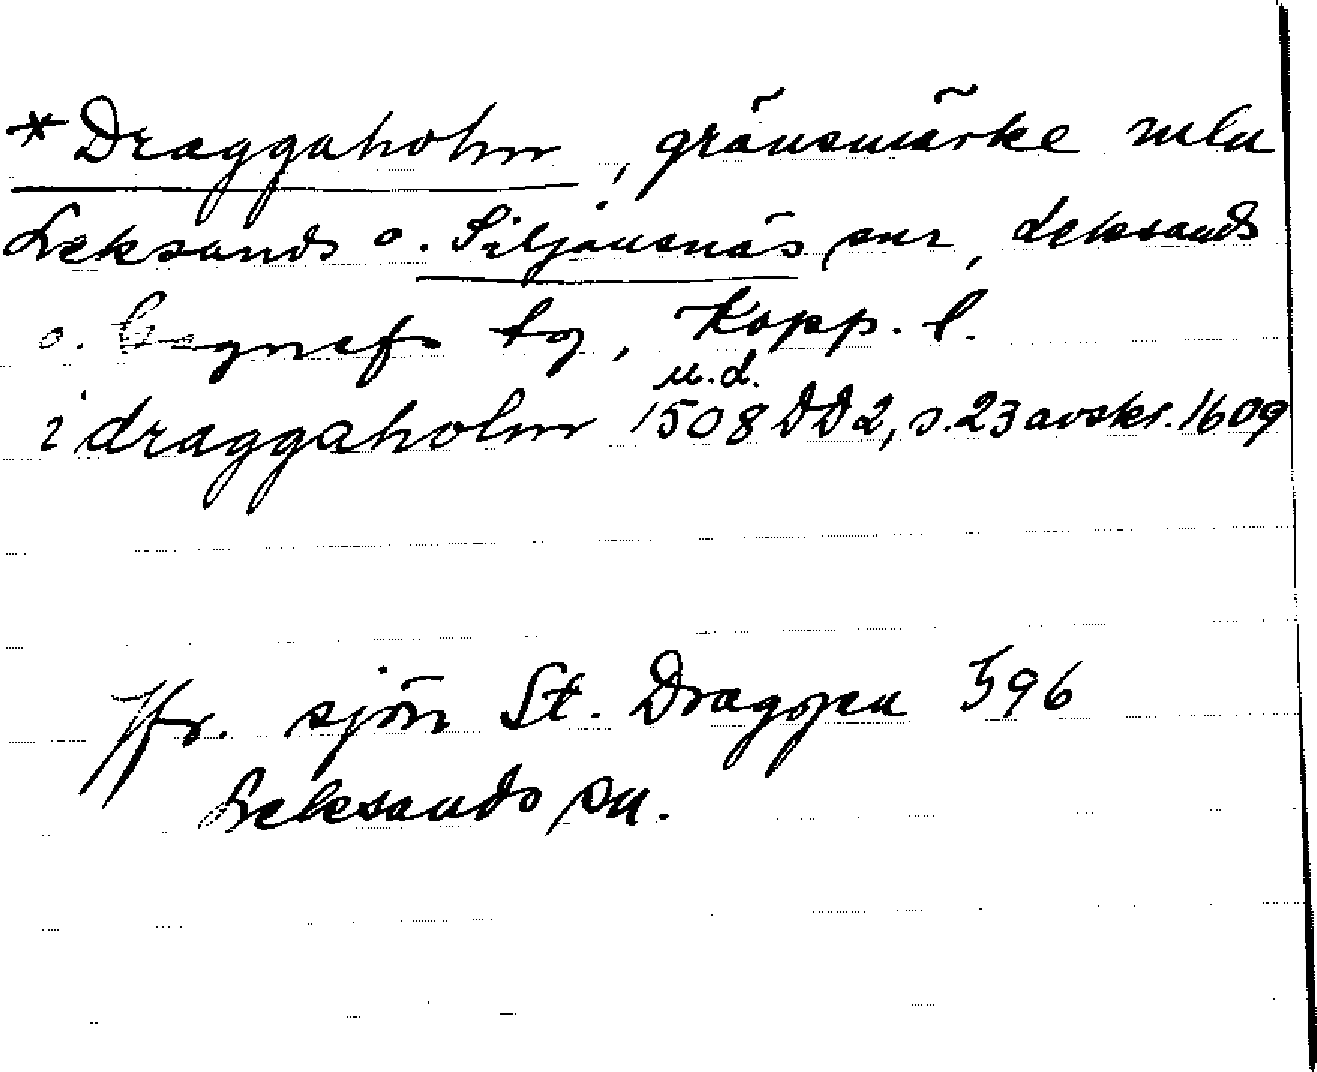 *Draggaholm, gränsmärke mln
Leksands o. Siljansnäs snr, Leksands
o. Gagnefs tg, Kopp. l.
u.d.
i draggaholm 1508 DD2, s. 23 avskr. 1609
Jfr. sjön St. Draggen 596
Leksands sn.